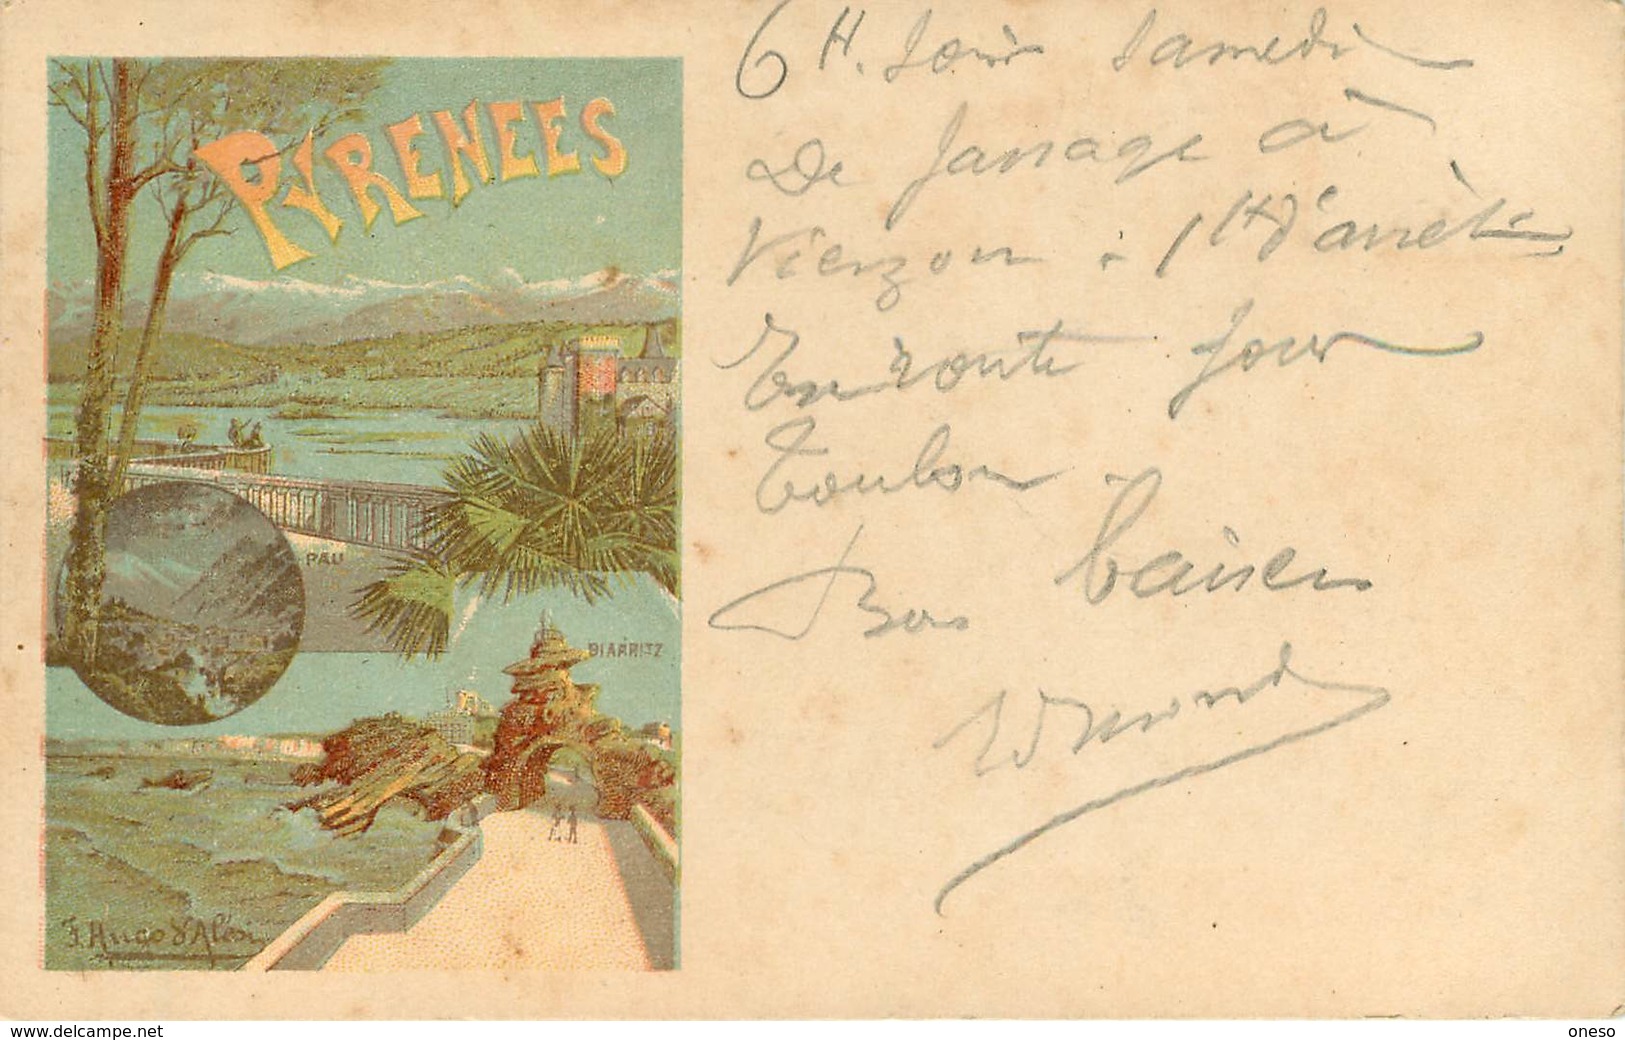 PYRENEES
PAU
BIARRITZ
F. Hugo d'Alési
6 H. Soir Samedi
De passage à
Vierzon. 1 H d'arrêt
En route pour
Toulon.
Bons baisers
Edmond
www.delcampe.net
oneso